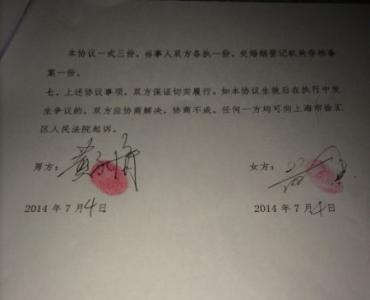 本协议一式三份，当事人双方各执一份，交婚姻登记机关存档备
案一份。
七、上述协议事项，双方保证切实履行。如本协议生效后在执行中
发生争议的，双方应协商解决，协商不成，任何一方均可向上海市徐汇
区人民法院起诉。
男方： 女方：
2014 年 7 月 4 日 2014 年 7 月 4 日